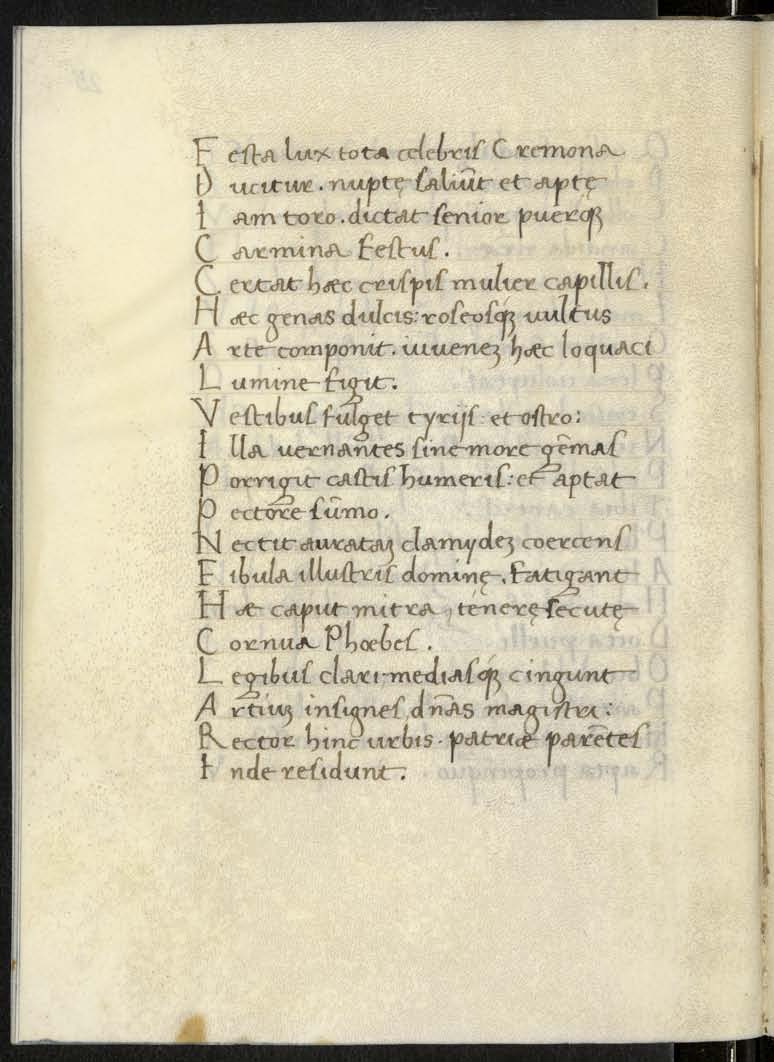 Festa lux tota celebris Cremona
Ducitur. nuptę saliūt et aptę
Iam toro. dictat senior puerq̃
Carmina Festus.
Certat hæc crispis mulier capillis.
Hæc genas dulcis: roseosq̃ vultus
Arte componit. iuveneꝫ hæc loquaci
Lumine figit.
Vestibus fulget tyrijs: et ostro:
Illa vernantes sine more gēmas
Porrigit castis humeris: et aptat
Pectore sūmo.
Nectit aurataꝫ clamydeꝫ coercens
Fibula illustris dominę. Fatigant
Hæ caput mitra, tenerę secutę
Cornua Phœbes.
Legibus clari mediasq̃ cingunt
Artiuꝫ insignes dn̄as magistri:
Rector hinc urbis. patriæ parētes
Inde residunt.